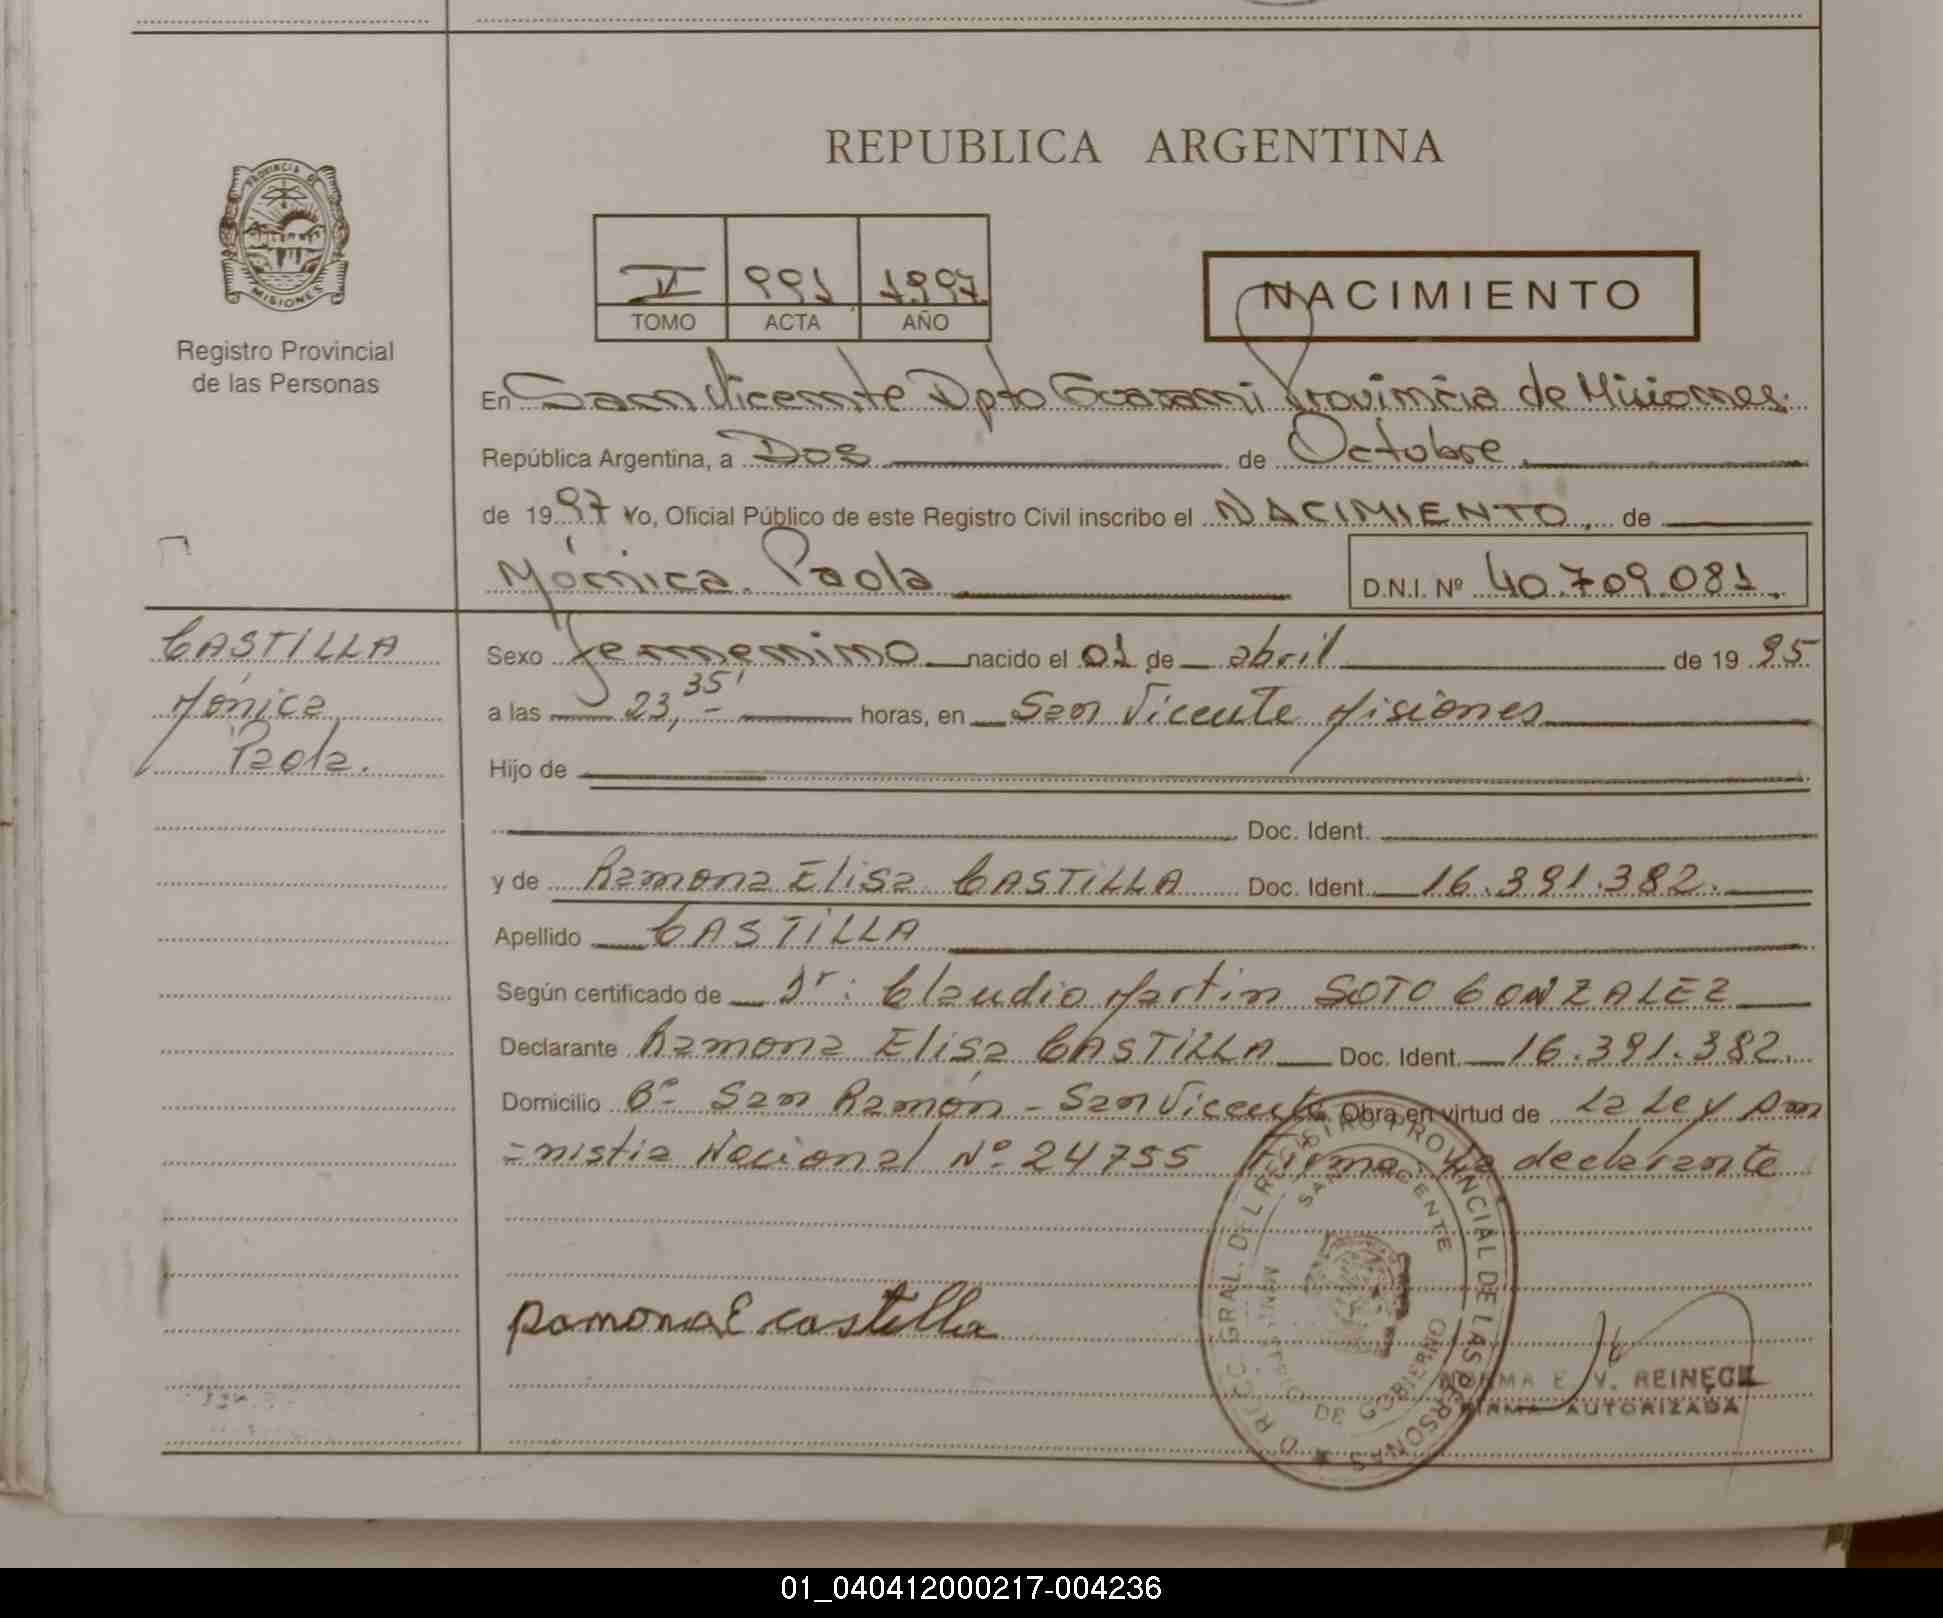 REPUBLICA ARGENTINA
PROVINCIA DE
MISIONES
Registro Provincial
de las Personas
V 991 1997
TOMO ACTA AÑO
NACIMIENTO
En San Vicente Dpto Guarani Provincia de Misiones.
República Argentina, a Dos de Octubre
de 1997 Yo, Oficial Público de este Registro Civil inscribo el NACIMIENTO, de
Mónica Paola D.N.I. Nº 40.709.081.
CASTILLA
Mónica
Paola.
Sexo femenino nacido el 01 de abril de 1995
a las 23,35' horas, en San Vicente Misiones
Hijo de
Doc. Ident.
y de Ramona Elisa CASTILLA Doc. Ident. 16.391.382.
Apellido CASTILLA
Según certificado de Dr: Claudio Martin SOTO GONZALEZ
Declarante Ramona Elisa CASTILLA Doc. Ident. 16.391.382.
Domicilio Bº San Ramón - San Vicente Obra en virtud de La Ley Am
=nistia Nacional Nº 24755 Firma La declarante
Ramona E castilla
GRAL. DEL REGISTRO PROVINCIAL DE LAS PERSONAS
SAN VICENTE
DE GOBIERNO
NORMA E. V. REINECK
FIRMA AUTORIZADA
01_040412000217-004236